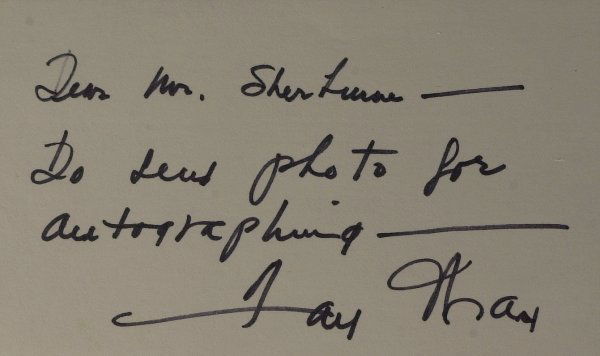 Dear Mr. Sherburne —
Do send photo for
autographing —
Fay Wray